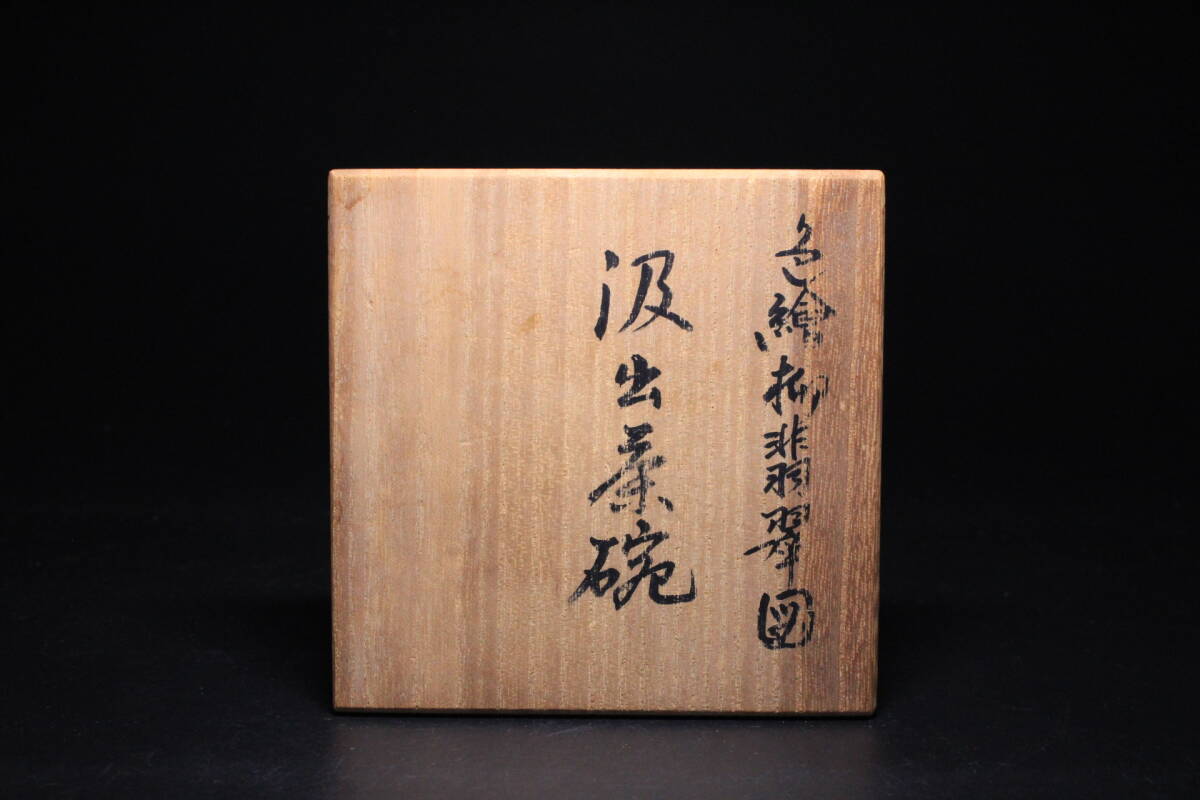 色繪柳翡翠図
汲出茶碗